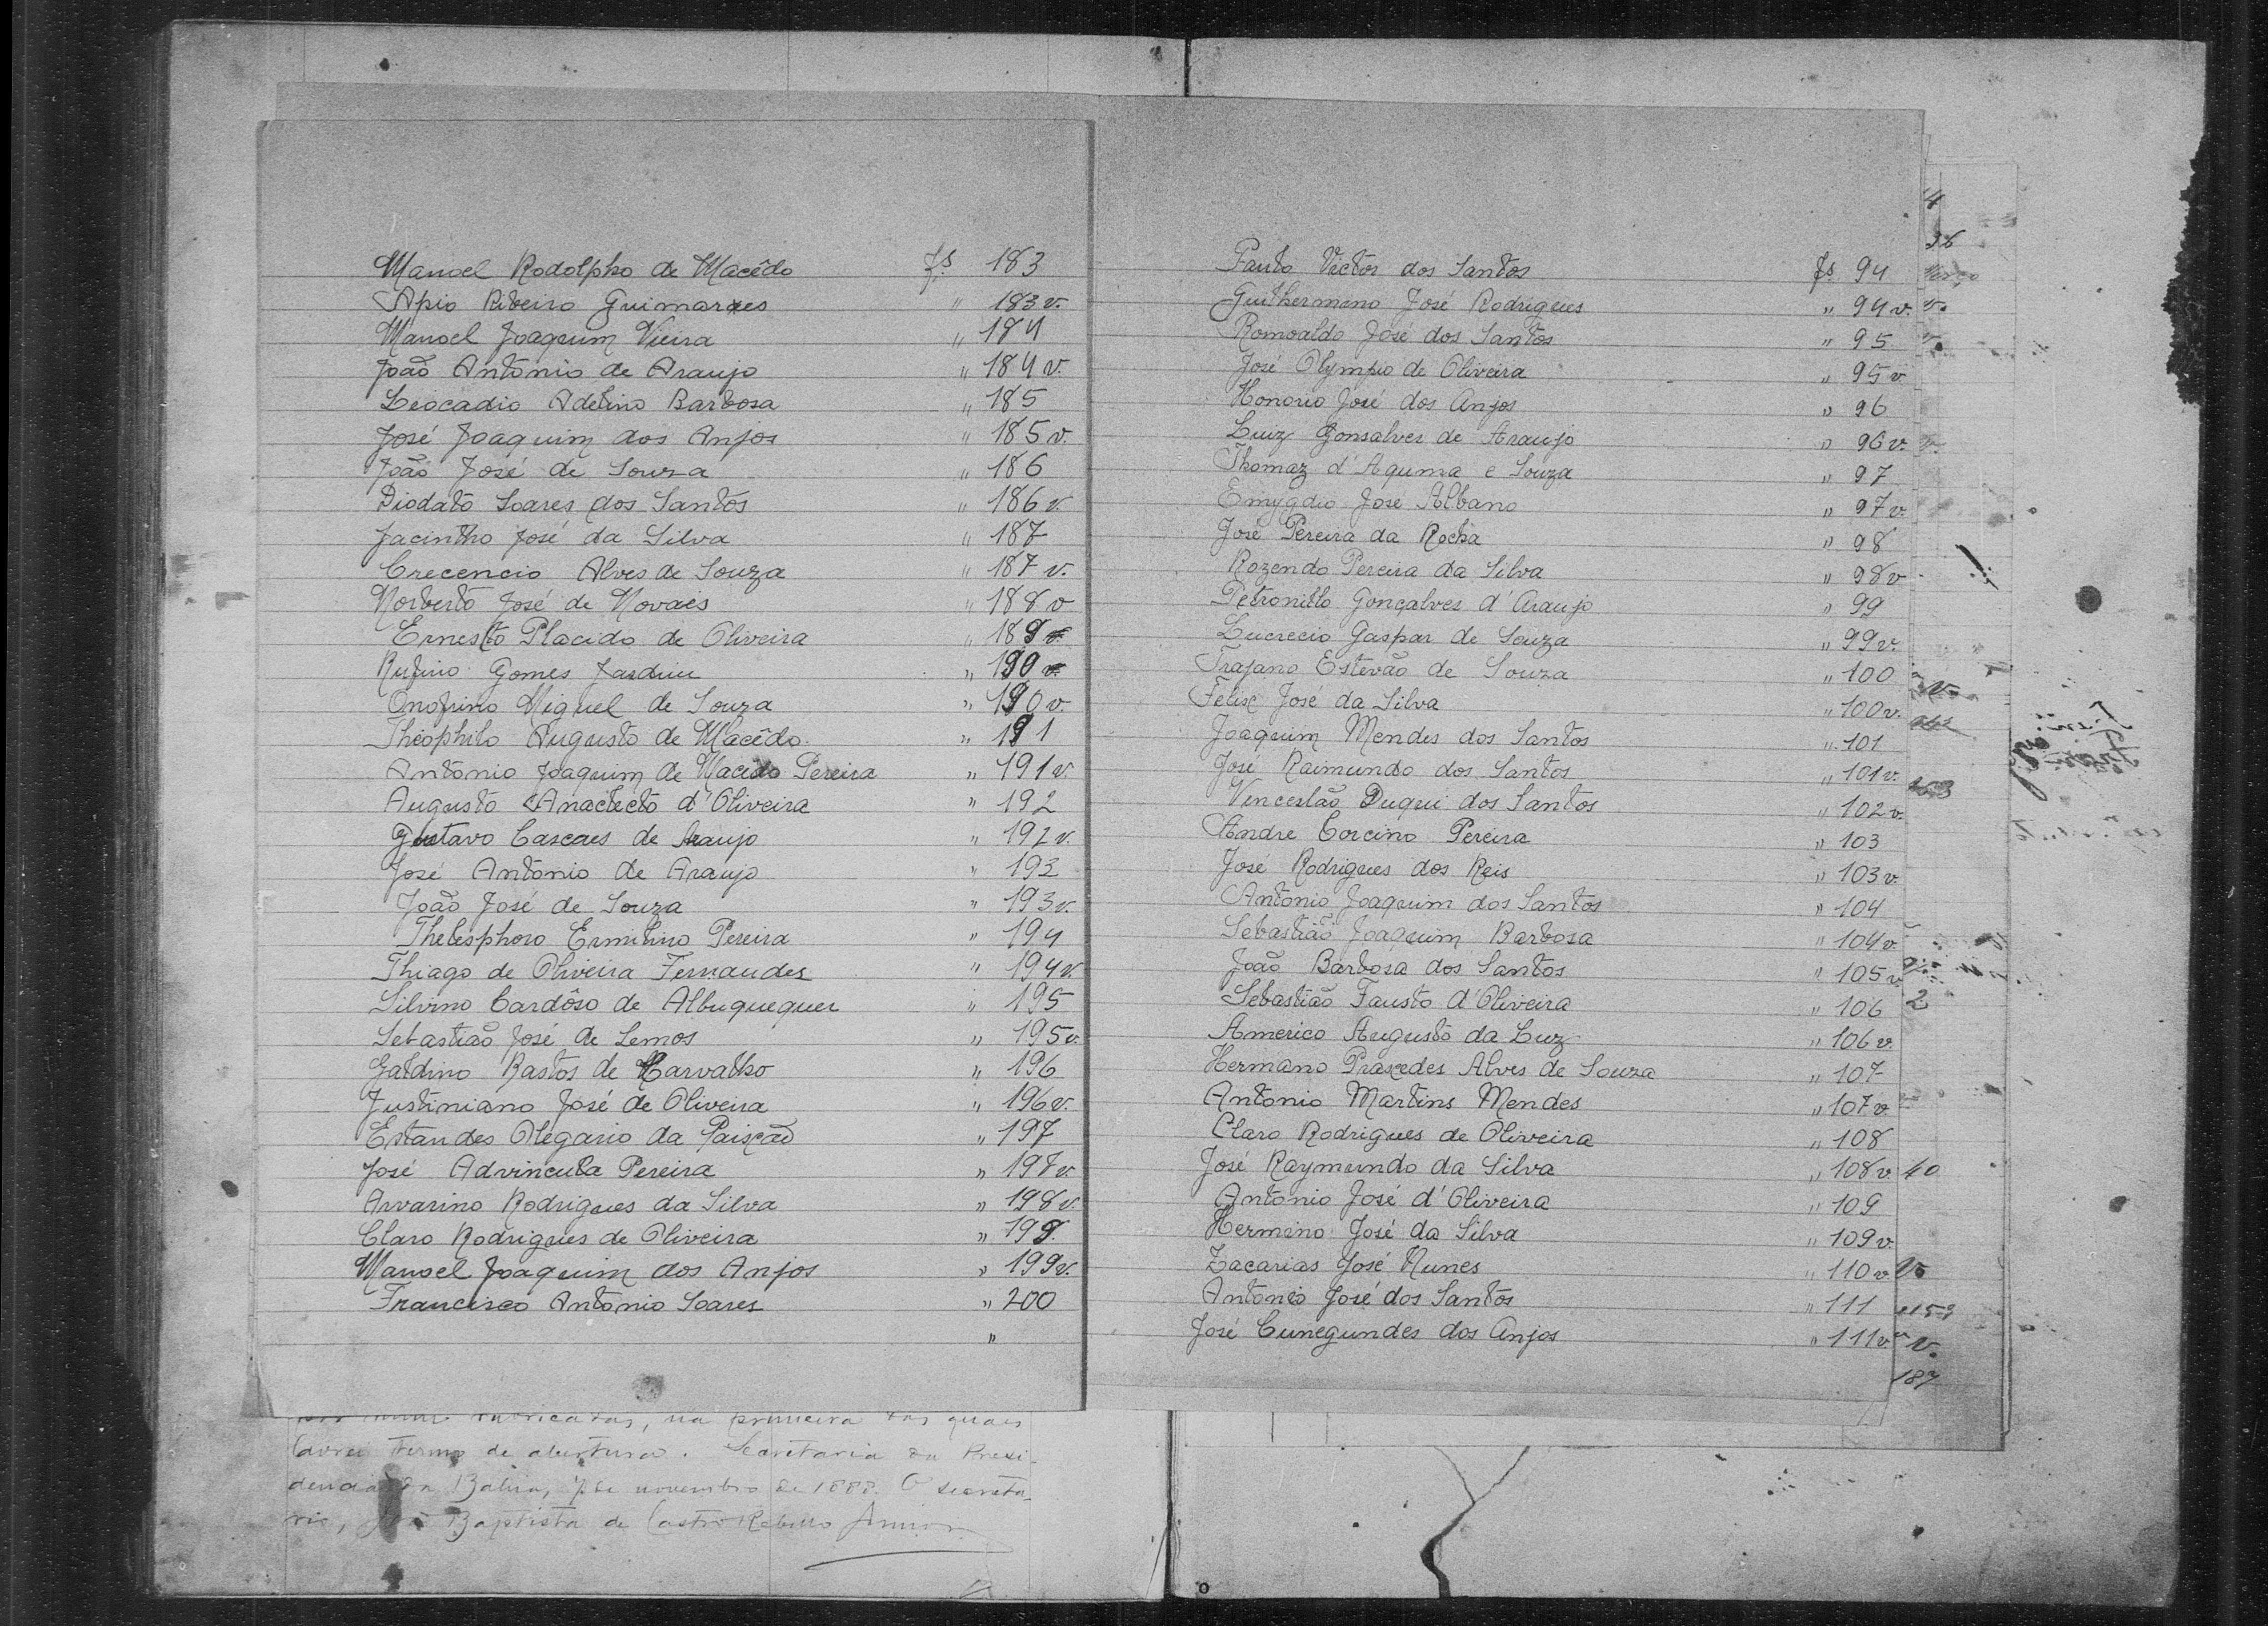 Manoel Rodolpho de Macêdo fs. 183
Apio Ribeiro Guimaraes " 183 v.
Manoel Joaquim Vieira " 184
João Antonio de Araujo " 184 v.
Leocadio Adelino Barbosa " 185
José Joaquim dos Anjos " 185 v.
João José de Souza " 186
Diodato Soares dos Santos " 186 v.
Jacintho José da Silva " 187
Crecencio Alves de Souza " 187 v.
Norberto José de Novaes " 188 v
Ernesto Placido de Oliveira " 189
Rufino Gomes Jardim " 190
Onofrino Miguel de Souza " 190 v.
Théophilo Augusto de Macêdo " 191
Antonio Joaquim de Macêdo Pereira " 191 v.
Augusto Anactecto d'Oliveira " 192
Gustavo Cascaes de Araujo " 192 v.
José Antonio de Araujo " 193
João José de Souza " 193 v.
Thelesphoro Ermilino Pereira " 194
Thiago de Oliveira Fernandes " 194 v.
Silvino Cardôso de Albuquequer " 195
Sebastião José de Lemos " 195 v.
Galdino Bastos de Carvalho " 196
Justiniano José de Oliveira " 196 v.
Estandes Olegario da Paixão " 197
José Advincula Pereira " 197 v.
Arvarino Rodrigues da Silva " 198 v.
Claro Rodrigues de Oliveira " 199
Manoel Joaquim dos Anjos " 199 v.
Francisco Antonio Soares " 200
"
rubricadas, na primeira das quaes
lavrei termo de abertura. Secretaria da Presi-
dencia da Bahia, 7 de novembro de 1888. O secreta-
rio, João Baptista de Castro Rebello Junior
Paulo Victor dos Santos fs. 94
Guilhermino José Rodrigues " 94 v.
Romoaldo José dos Santos " 95
José Olympio de Oliveira " 95 v.
Honorio José dos Anjos " 96
Luiz Gonsalves de Araujo " 96 v.
Thomaz d'Aquima e Souza " 97
Emygdio José Albano " 97 v.
José Pereira da Rocha " 98
Rozendo Pereira da Silva " 98 v
Petronillo Gonçalves d'Araujo " 99
Lucrecio Gaspar de Souza " 99 v.
Trajano Estevão de Souza " 100
Felix José da Silva " 100 v.
Joaquim Mendes dos Santos " 101
José Raimundo dos Santos " 101 v.
Venceslão Duqui dos Santos " 102 v.
Andre Corcino Pereira " 103
José Rodrigues dos Reis " 103 v.
Antonio Joaquim dos Santos " 104
Sebastião Joaquim Barbosa " 104 v.
João Barbosa dos Santos " 105 v.
Sebastião Fausto d'Oliveira " 106
Americo Augusto da Luz " 106 v.
Hermano Praxedes Alves de Souza " 107
Antonio Martins Mendes " 107 v.
Claro Rodrigues de Oliveira " 108
José Raymundo da Silva " 108 v.
Antonio José d'Oliveira " 109
Hermino José da Silva " 109 v.
Zacarias José Nunes " 110 v.
Antonio José dos Santos " 111
José Cunegundes dos Anjos " 111 v.
187